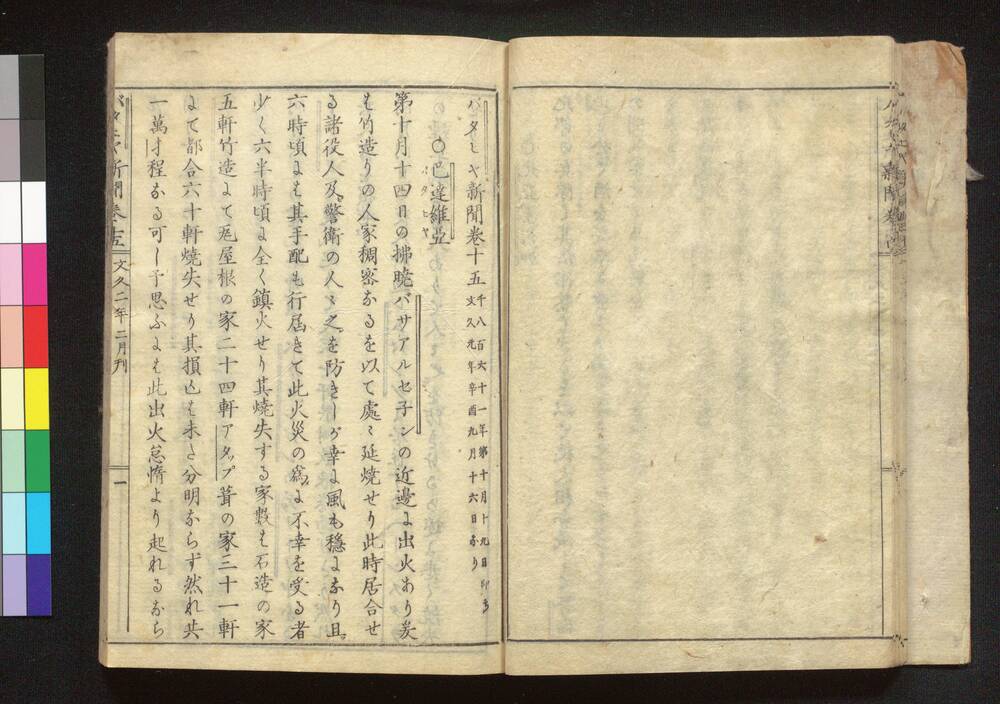 バタヒヤ新聞巻十五 千八百六十一年第十月十九日
文久元年辛酉九月十六日なり
○巴達維亞
バタヒヤ
第十月十四日の拂暁パサアルセ子ンの近邊に出火あり爰
も竹造りの人家稠密なるを以て處々延焼せり此時居合せ
る諸役人及警衛の人々之を防きしが幸に風も穏になり且
六時頃にも其手配も行届きて此火災の為に不幸を受る者
少く六半時頃に全く鎮火せり其焼失する家數も石造の家
五軒竹造にて瓦屋根の家二十四軒アタップ葺の家三十一軒
にて都合六十軒焼失せり其損亡も未た分明ならず然れ共
一萬才程なる可し予思ふにも此出火怠惰より起れるなら
バタヒヤ新聞巻十五
文久二年二月刊
一